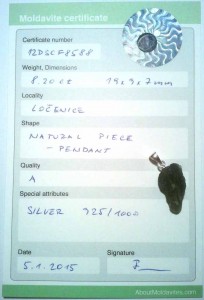 Moldavite certificate
Certificate number
12DSCF8588
Weight, Dimensions
8.20 ct 19x9x7mm
Locality
LOČENICE
Shape
NATURAL PIECE
- PENDANT
Quality
A
Special attributes
SILVER 925/1000
Date
Signature
5.1.2015
AboutMoldavites.com